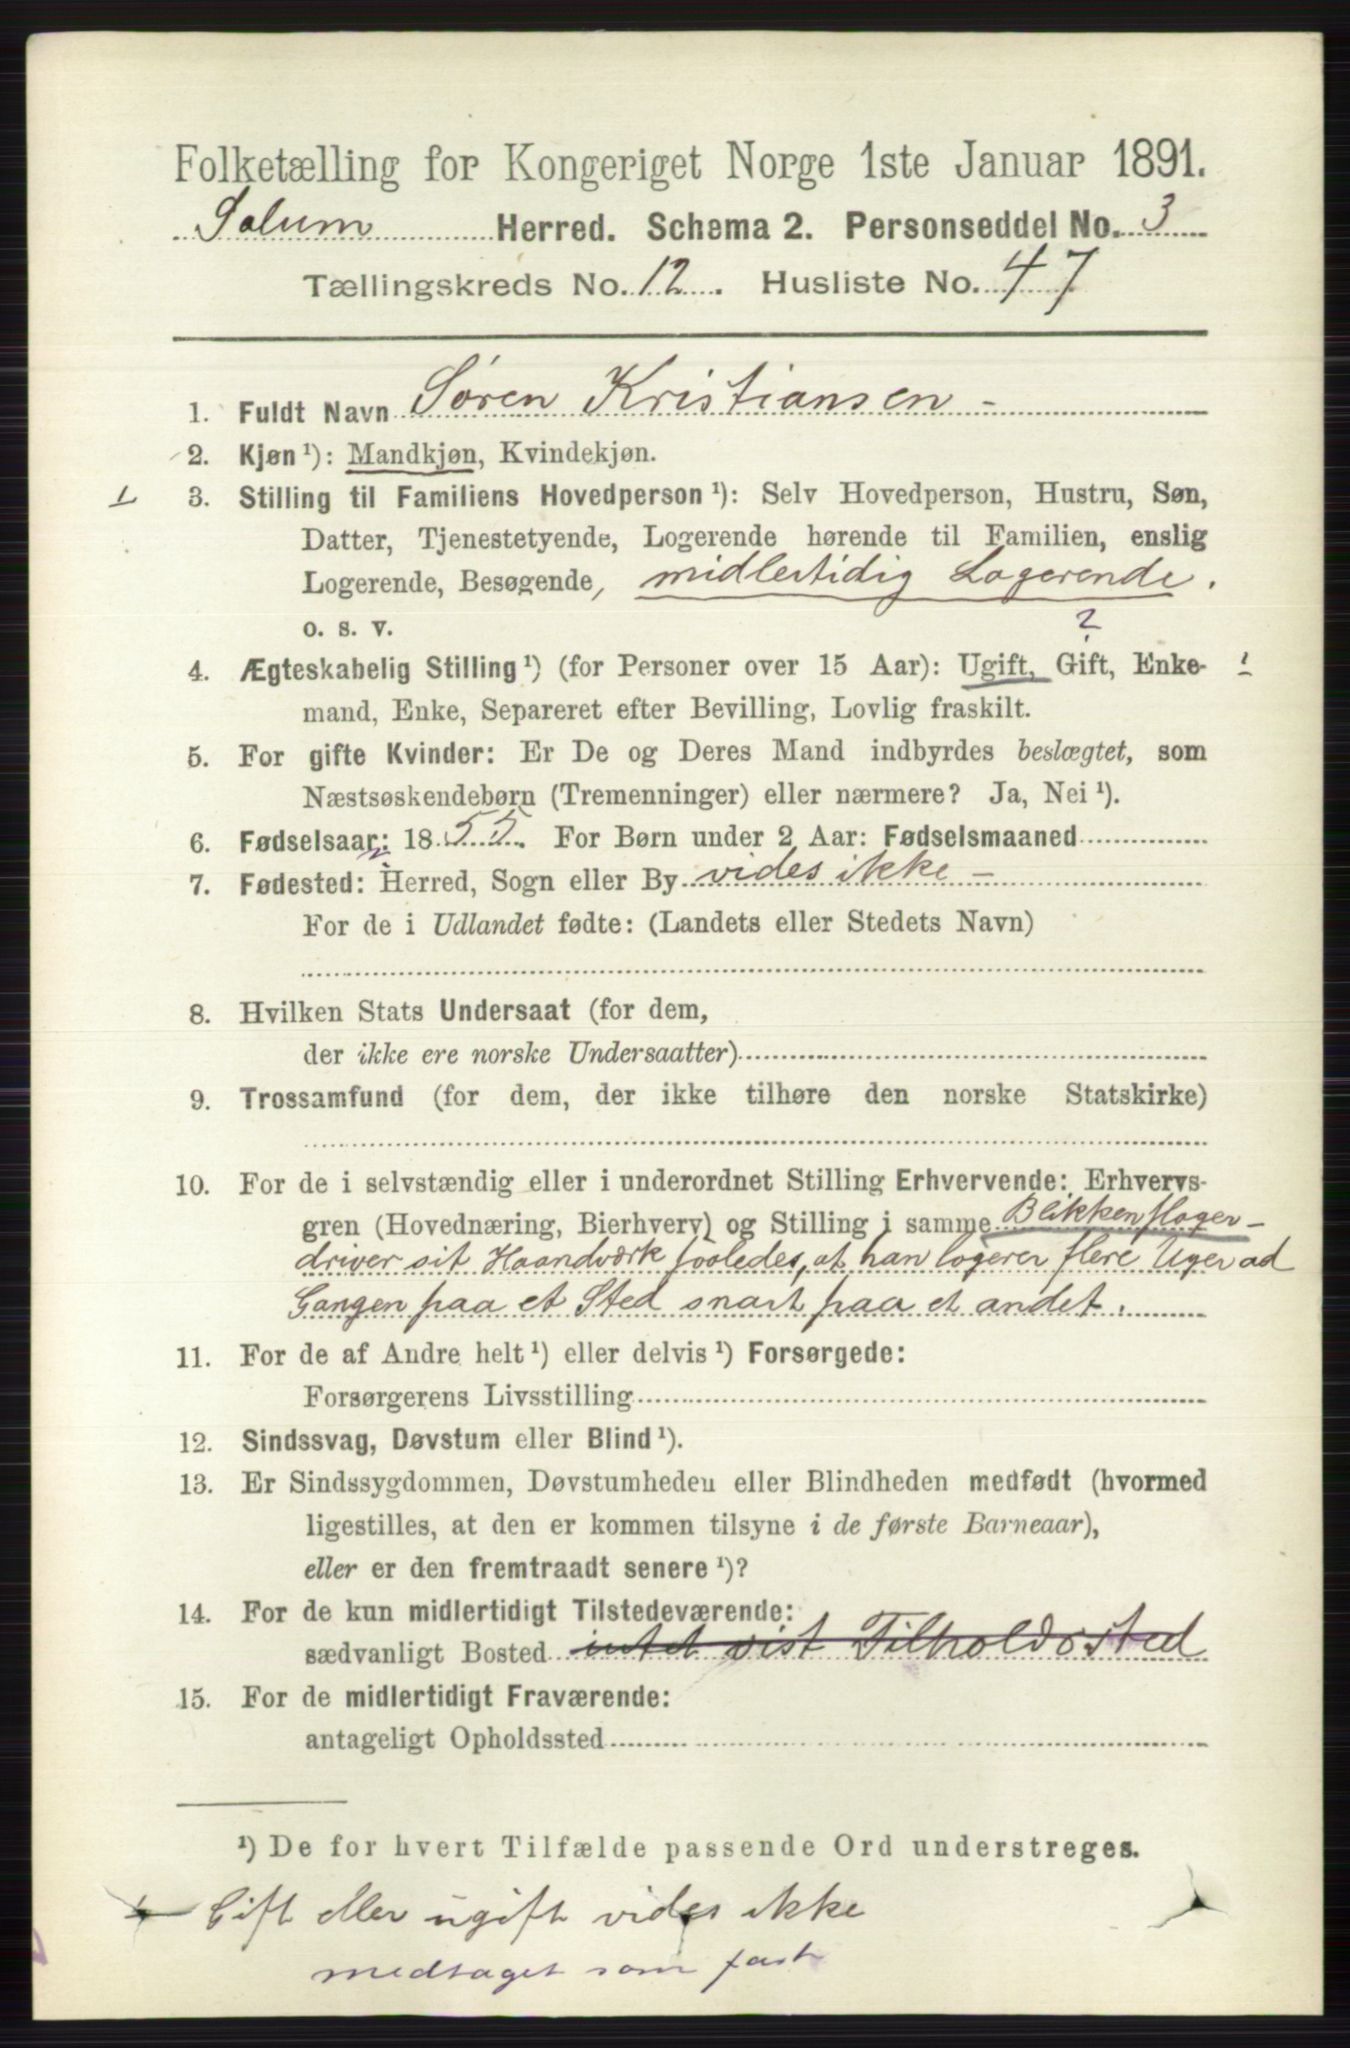 Folketælling for Kongeriget Norge 1ste Januar 1891.
Solum Herred. Schema 2. Personseddel No. 3
Tællingskreds No. 12. Husliste No. 47
1. Fuldt Navn Søren Kristiansen -
2. Kjøn ¹): Mandkjøn, Kvindekjøn.
1 3. Stilling til Familiens Hovedperson ¹): Selv Hovedperson, Hustru, Søn,
Datter, Tjenestetyende, Logerende hørende til Familien, enslig
Logerende, Besøgende, midlertidig Logerende.
o. s. v.
?
4. Ægteskabelig Stilling ¹) (for Personer over 15 Aar): Ugift, Gift, Enke- 1
mand, Enke, Separeret efter Bevilling, Lovlig fraskilt.
5. For gifte Kvinder: Er De og Deres Mand indbyrdes beslægtet, som
Næstsøskendebørn (Tremenninger) eller nærmere? Ja, Nei ¹).
6. Fødselsaar: 1855. For Børn under 2 Aar: Fødselsmaaned
7. Fødested: Herred, Sogn eller By vides ikke -
For de i Udlandet fødte: (Landets eller Stedets Navn)
8. Hvilken Stats Undersaat (for dem,
der ikke ere norske Undersaatter)
9. Trossamfund (for dem, der ikke tilhøre den norske Statskirke)
10. For de i selvstændig eller i underordnet Stilling Erhvervende: Erhvervs-
gren (Hovednæring, Bierhverv) og Stilling i samme Blikkenslager -
driver sit Haandværk saaledes, at han logerer flere Uger ad
Gangen paa et Sted snart paa et andet.
11. For de af Andre helt ¹) eller delvis ¹) Forsørgede:
Forsørgerens Livsstilling
12. Sindssvag, Døvstum eller Blind ¹).
13. Er Sindssygdommen, Døvstumheden eller Blindheden medfødt (hvormed
ligestilles, at den er kommen tilsyne i de første Barneaar),
eller er den fremtraadt senere ¹)?
14. For de kun midlertidigt Tilstedeværende:
sædvanligt Bosted intet vist Tilholdssted
15. For de midlertidigt Fraværende:
antageligt Opholdssted
¹) De for hvert Tilfælde passende Ord understreges.
Gift eller ugift vides ikke
medtaget som fast